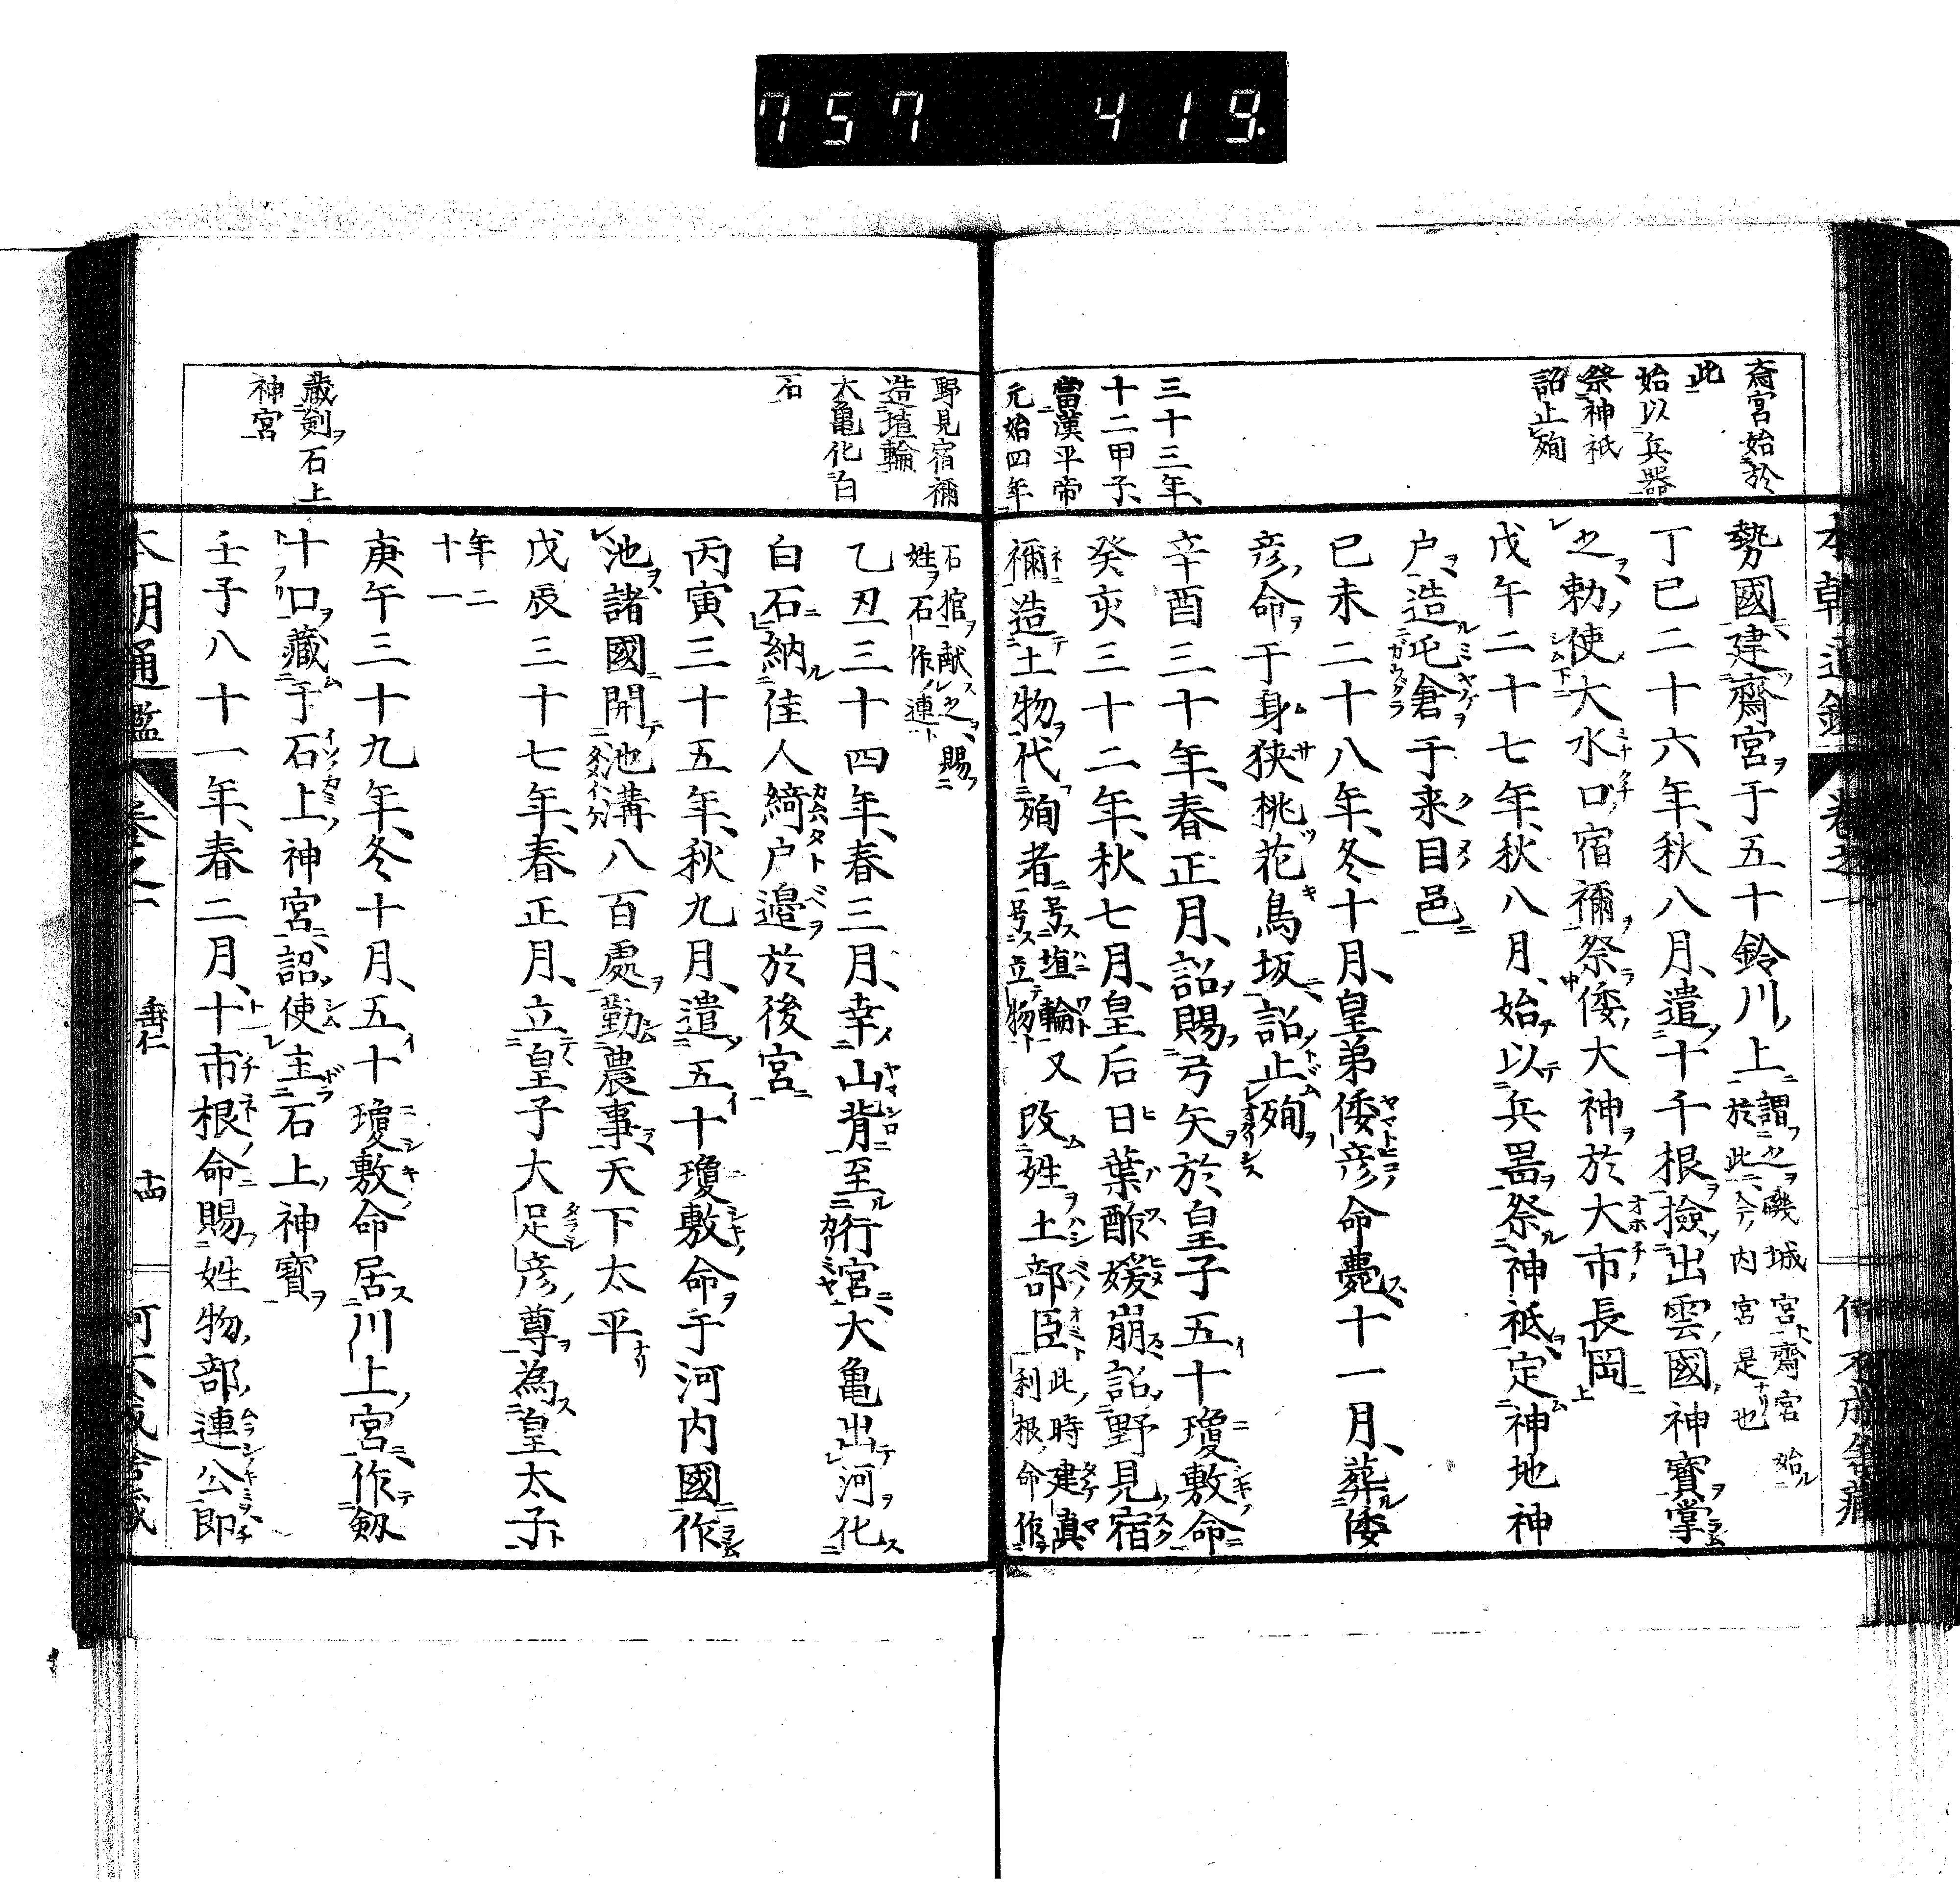 757 419
斎宮始於
此
始以兵器
祭神祇
詔止殉
三十三年、
十二甲子、
當漢平帝
元始四年
勢國建齋宮于五十鈴川上謂之磯城宮齋宮始
於此今內宮是也
丁巳二十六年、秋八月、遣十千根撿出雲國神寶掌
之勅使大水口宿禰祭倭大神於大市長岡
戊午二十七年、秋八月、始以兵噐祭神祇定神地神
户造屯倉于来目邑
己未二十八年、冬十月、皇弟倭彦命薨十一月、葬倭
彦命于身狭桃花鳥坂詔止殉
辛酉三十年、春正月、詔賜弓矢於皇子五十瓊敷命
癸亥三十二年、秋七月、皇后日葉酢媛崩詔野見宿
禰造土物代殉者号埴輪
号立物又改姓土部臣此時建真
利根命作
野見宿禰
造埴輪
大亀化白
石
蔵剣石上
神宮
石棺献之賜
姓石作連
乙丑三十四年、春三月、幸山背至行宮大亀出河化
白石納佳人綺户邉於後宮
丙寅三十五年、秋九月、遣五十瓊敷命于河内國作
池諸國開池溝八百處勤農事天下太平
戊辰三十七年、春正月、立皇子大足彦尊為皇太子
年二
十一
庚午三十九年、冬十月、五十瓊敷命居川上宮作剱
十口藏于石上神宮詔使主石上神寶
壬子八十一年、春二月、十市根命賜姓物部連公即
本朝通鑑 卷之一 垂仁 十四